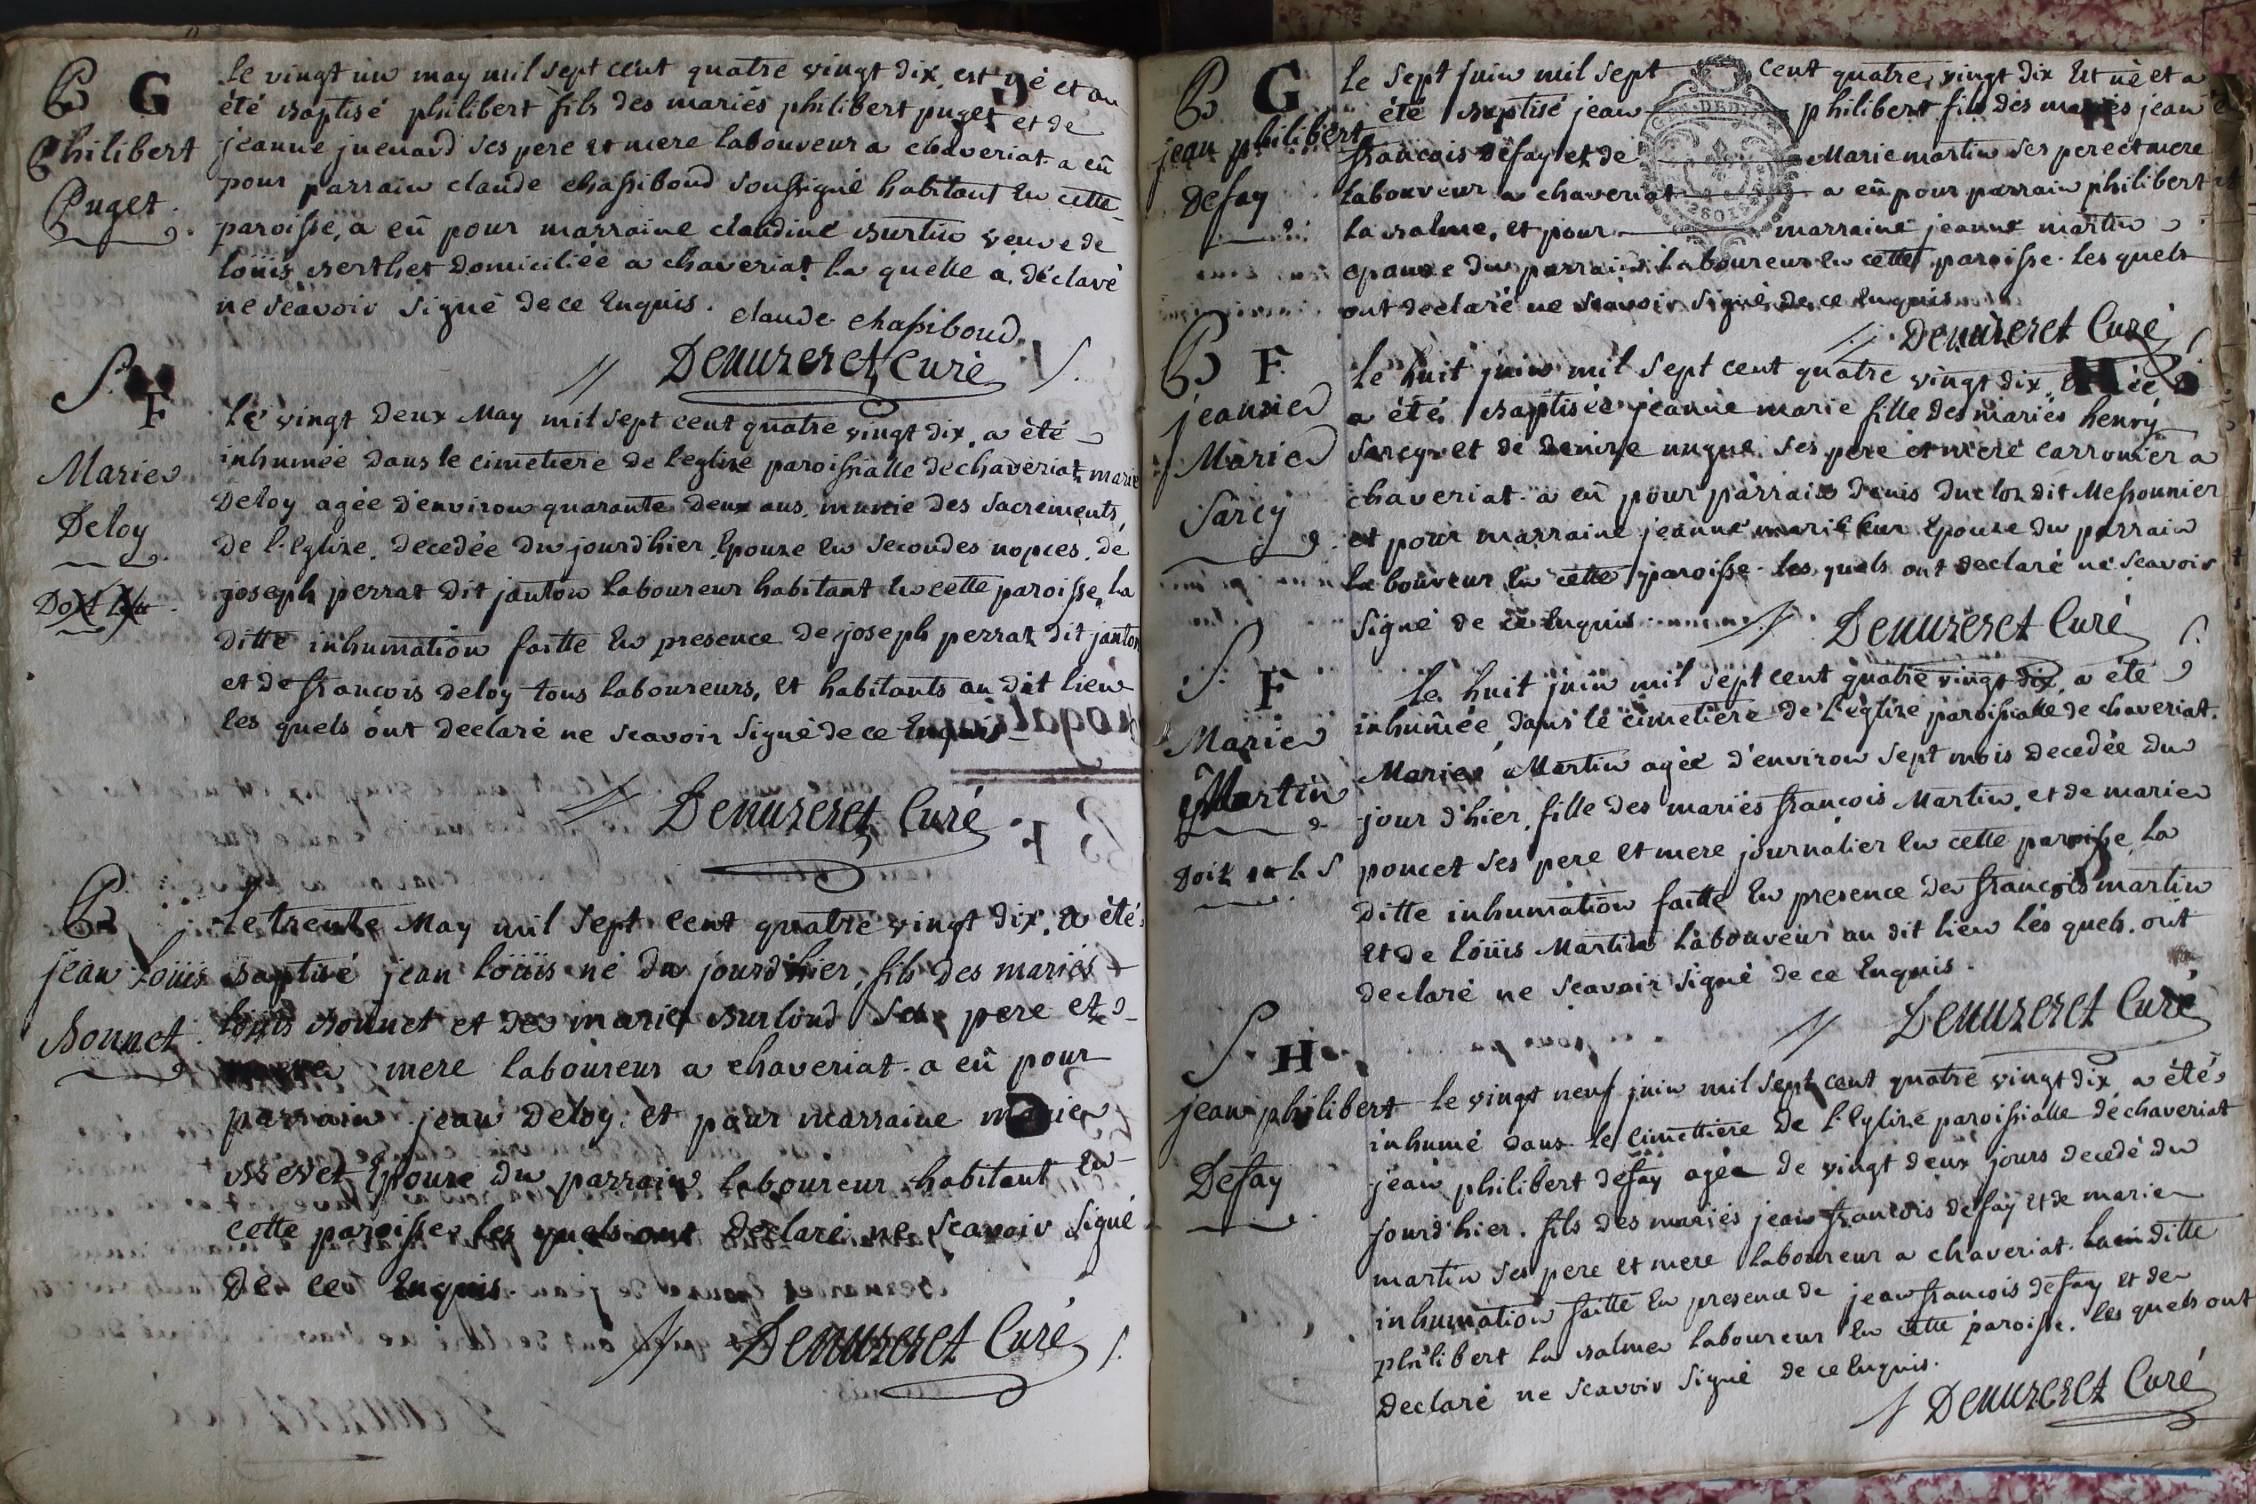 B G
Philibert
Puget.
le vingt un may mil sept cent quatre vingt dix, est né et a
été baptisé philibert fils des mariés philibert puget et de
jeanne juenard ses pere et mere laboureur a chaveriat a eû
pour parrain claude chassiboud soussigné habitant en cette
paroisse, a eû pour marraine claudine burtin veuve de
loüis berthet domiciliée a chaveriat la quelle a déclaré
ne scavoir signé de ce enquis. claude chassiboud
Denuzeret Curé
S. F
Marie
Deloy
le vingt deux May mil sept cent quatre vingt dix, a été
inhumée dans le cimetiere de l'eglise paroissialle de chaveriat marie
Deloy agée d'environ quarante deux ans, munie des sacrements
de l'Eglize, decedée du jourd'hier, Epouze en secondes nopces, de
joseph perrat dit janton laboureur habitant en cette paroisse, la
ditte inhumation faitte en presence de joseph perrat dit janton
et de francois deloy tous laboureurs, et habitants au dit lieu
les quels ont declaré ne scavoir signé de ce Enquis
Denuzeret Curé
B
jean Loüis
Bonnet
Le trente May mil sept cent quatre vingt dix, a été
baptisé jean loüis né du jourd'hier, fils des mariés
loüis bonnet et de marie burloud ses pere et
mere laboureur a chaveriat. a eû pour
parrain jean Deloy, et pour marraine marie
brevet Epouze du parrain laboureur habitant en
cette paroisse les quels ont declaré ne scavoir signé
de ce Enquis.
Denuzeret Curé
B G
jean philibert
Defay
le sept juin mil sept cent quatre vingt dix Est né et a
été baptisé jean philibert fils des mariés jean
francois defay et de Marie martin ses pere et mere
laboureur a chaveriat a eû pour parrain philibert
la balme, et pour marraine jeanne martin
epouze du parrain laboureur en cette paroisse. les quels
ont declaré ne scavoir signé de ce enquis
Denuzeret Curé
B F
jeanne
Marie
Sarcy
le huit juin mil sept cent quatre vingt dix, née
a été baptisée jeanne marie fille des mariés henry
Sarcy et de denize ses pere et mere carronier a
chaveriat. a eû pour parrain denis duclos dit Messonnier
et pour marraine jeanne marie Epouze du parrain
laboureur en cette paroisse les quels ont declaré ne scavoir
signé de ce Enquis
Denuzeret Curé
S. F
Marie
Martin
Doit
Le huit juin mil sept cent quatre vingt dix, a été
inhumée dans le cimetiere de l'eglize paroissialle de chaveriat.
Marie Martin agée d'environ sept mois decedée du
jour d'hier, fille des mariés francois Martin, et de marie
poncet ses pere et mere journalier en cette paroisse, la
ditte inhumation faitte En presence de francois martin
et de loüis Martin laboureur au dit lieu les quels ont
declaré ne scavoir signé de ce Enquis.
Denuzeret Curé
S. H
jean philibert
Defay
le vingt neuf juin mil sept cent quatre vingt dix a été
inhumé dans le cimettiere de l'Eglize paroissialle de chaveriat
jean philibert defay agée de vingt deux jours decedé du
jourd'hier. fils des mariés jean francois defay et de marie
martin ses pere et mere laboureur a chaveriat. la ditte
inhumation faitte en presence de jean francois defay et de
philibert la balme laboureur en cette paroisse. les quels ont
declaré ne scavoir signé de ce Enquis.
Denuzeret Curé